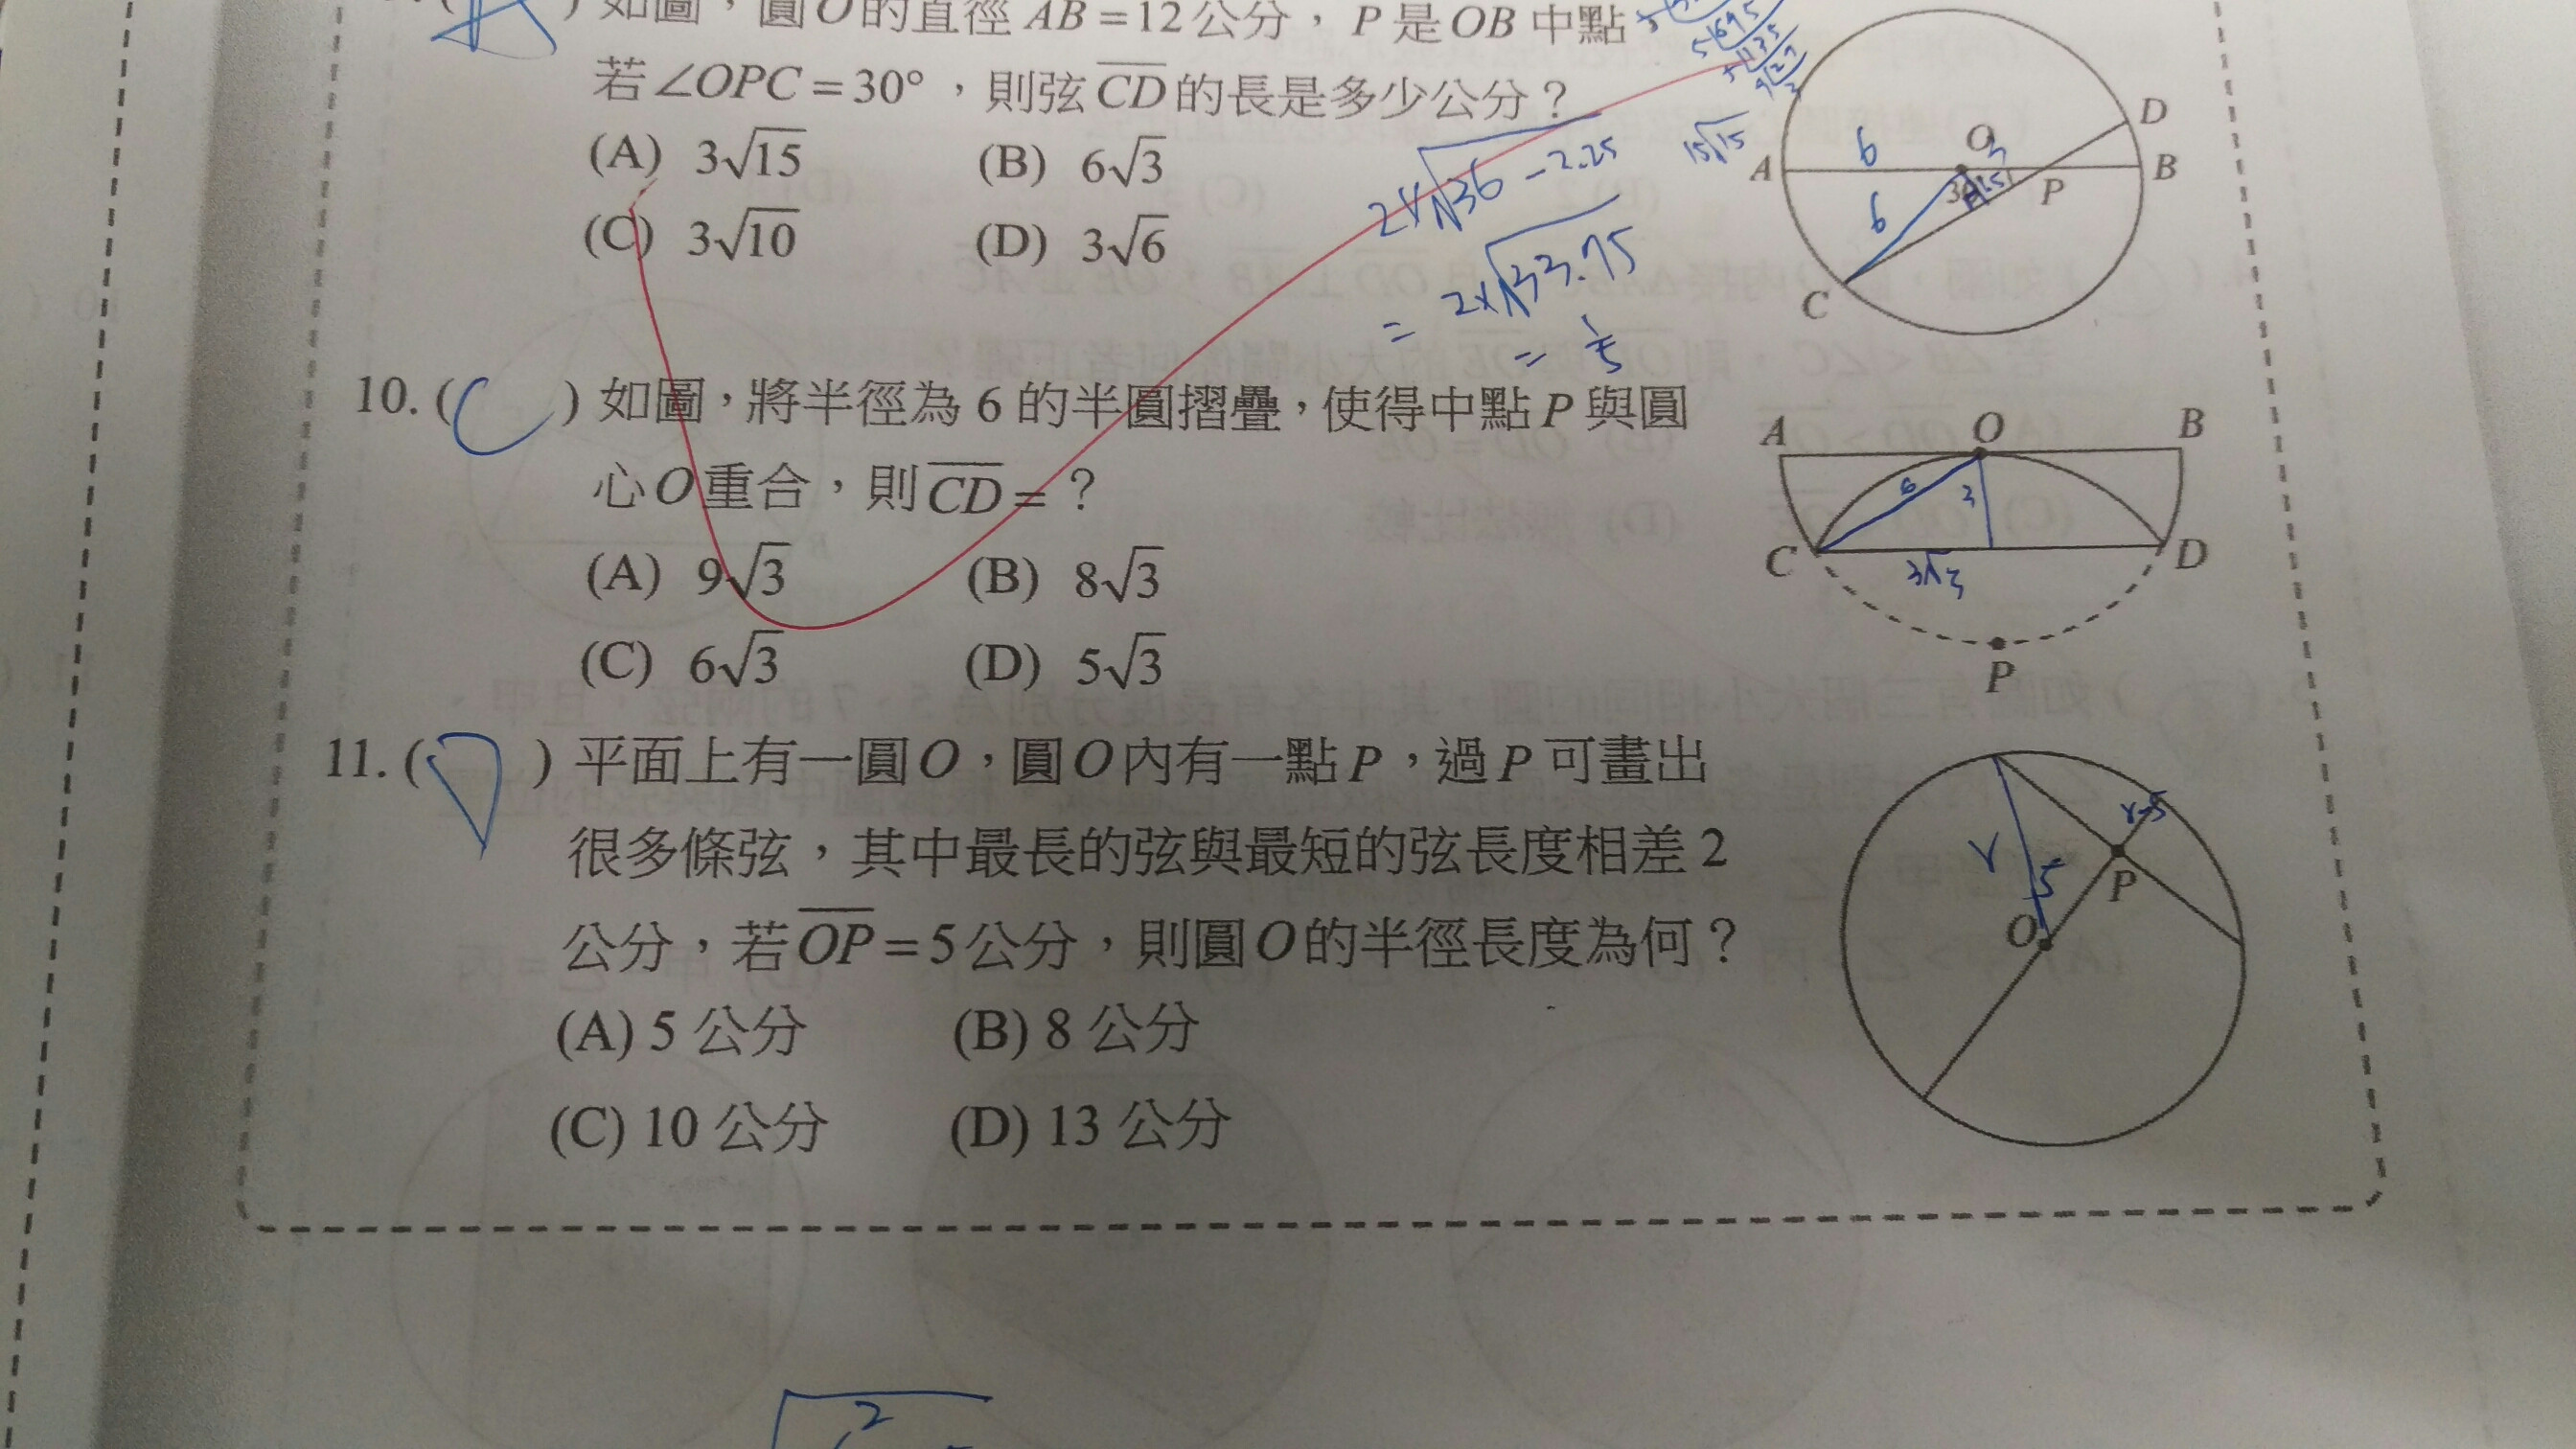 如圖，圓O的直徑 AB=12公分，P是OB中點
若∠OPC=30°，則弦CD的長是多少公分？
(A) 3√15 (B) 6√3
(C) 3√10 (D) 3√6
2×√36-2.25
=2×√33.75
=
15√15
A 6 O 3 P B D
6
C
10.(C) 如圖，將半徑為 6 的半圓摺疊，使得中點P與圓
心O重合，則CD=？
(A) 9√3 (B) 8√3
(C) 6√3 (D) 5√3
A O B
6 3
C 3√3 D
P
11.(D) 平面上有一圓O，圓O內有一點P，過P可畫出
很多條弦，其中最長的弦與最短的弦長度相差2
公分，若OP=5公分，則圓O的半徑長度為何？
(A) 5 公分 (B) 8 公分
(C) 10 公分 (D) 13 公分
r-5
r 5 P
O
2